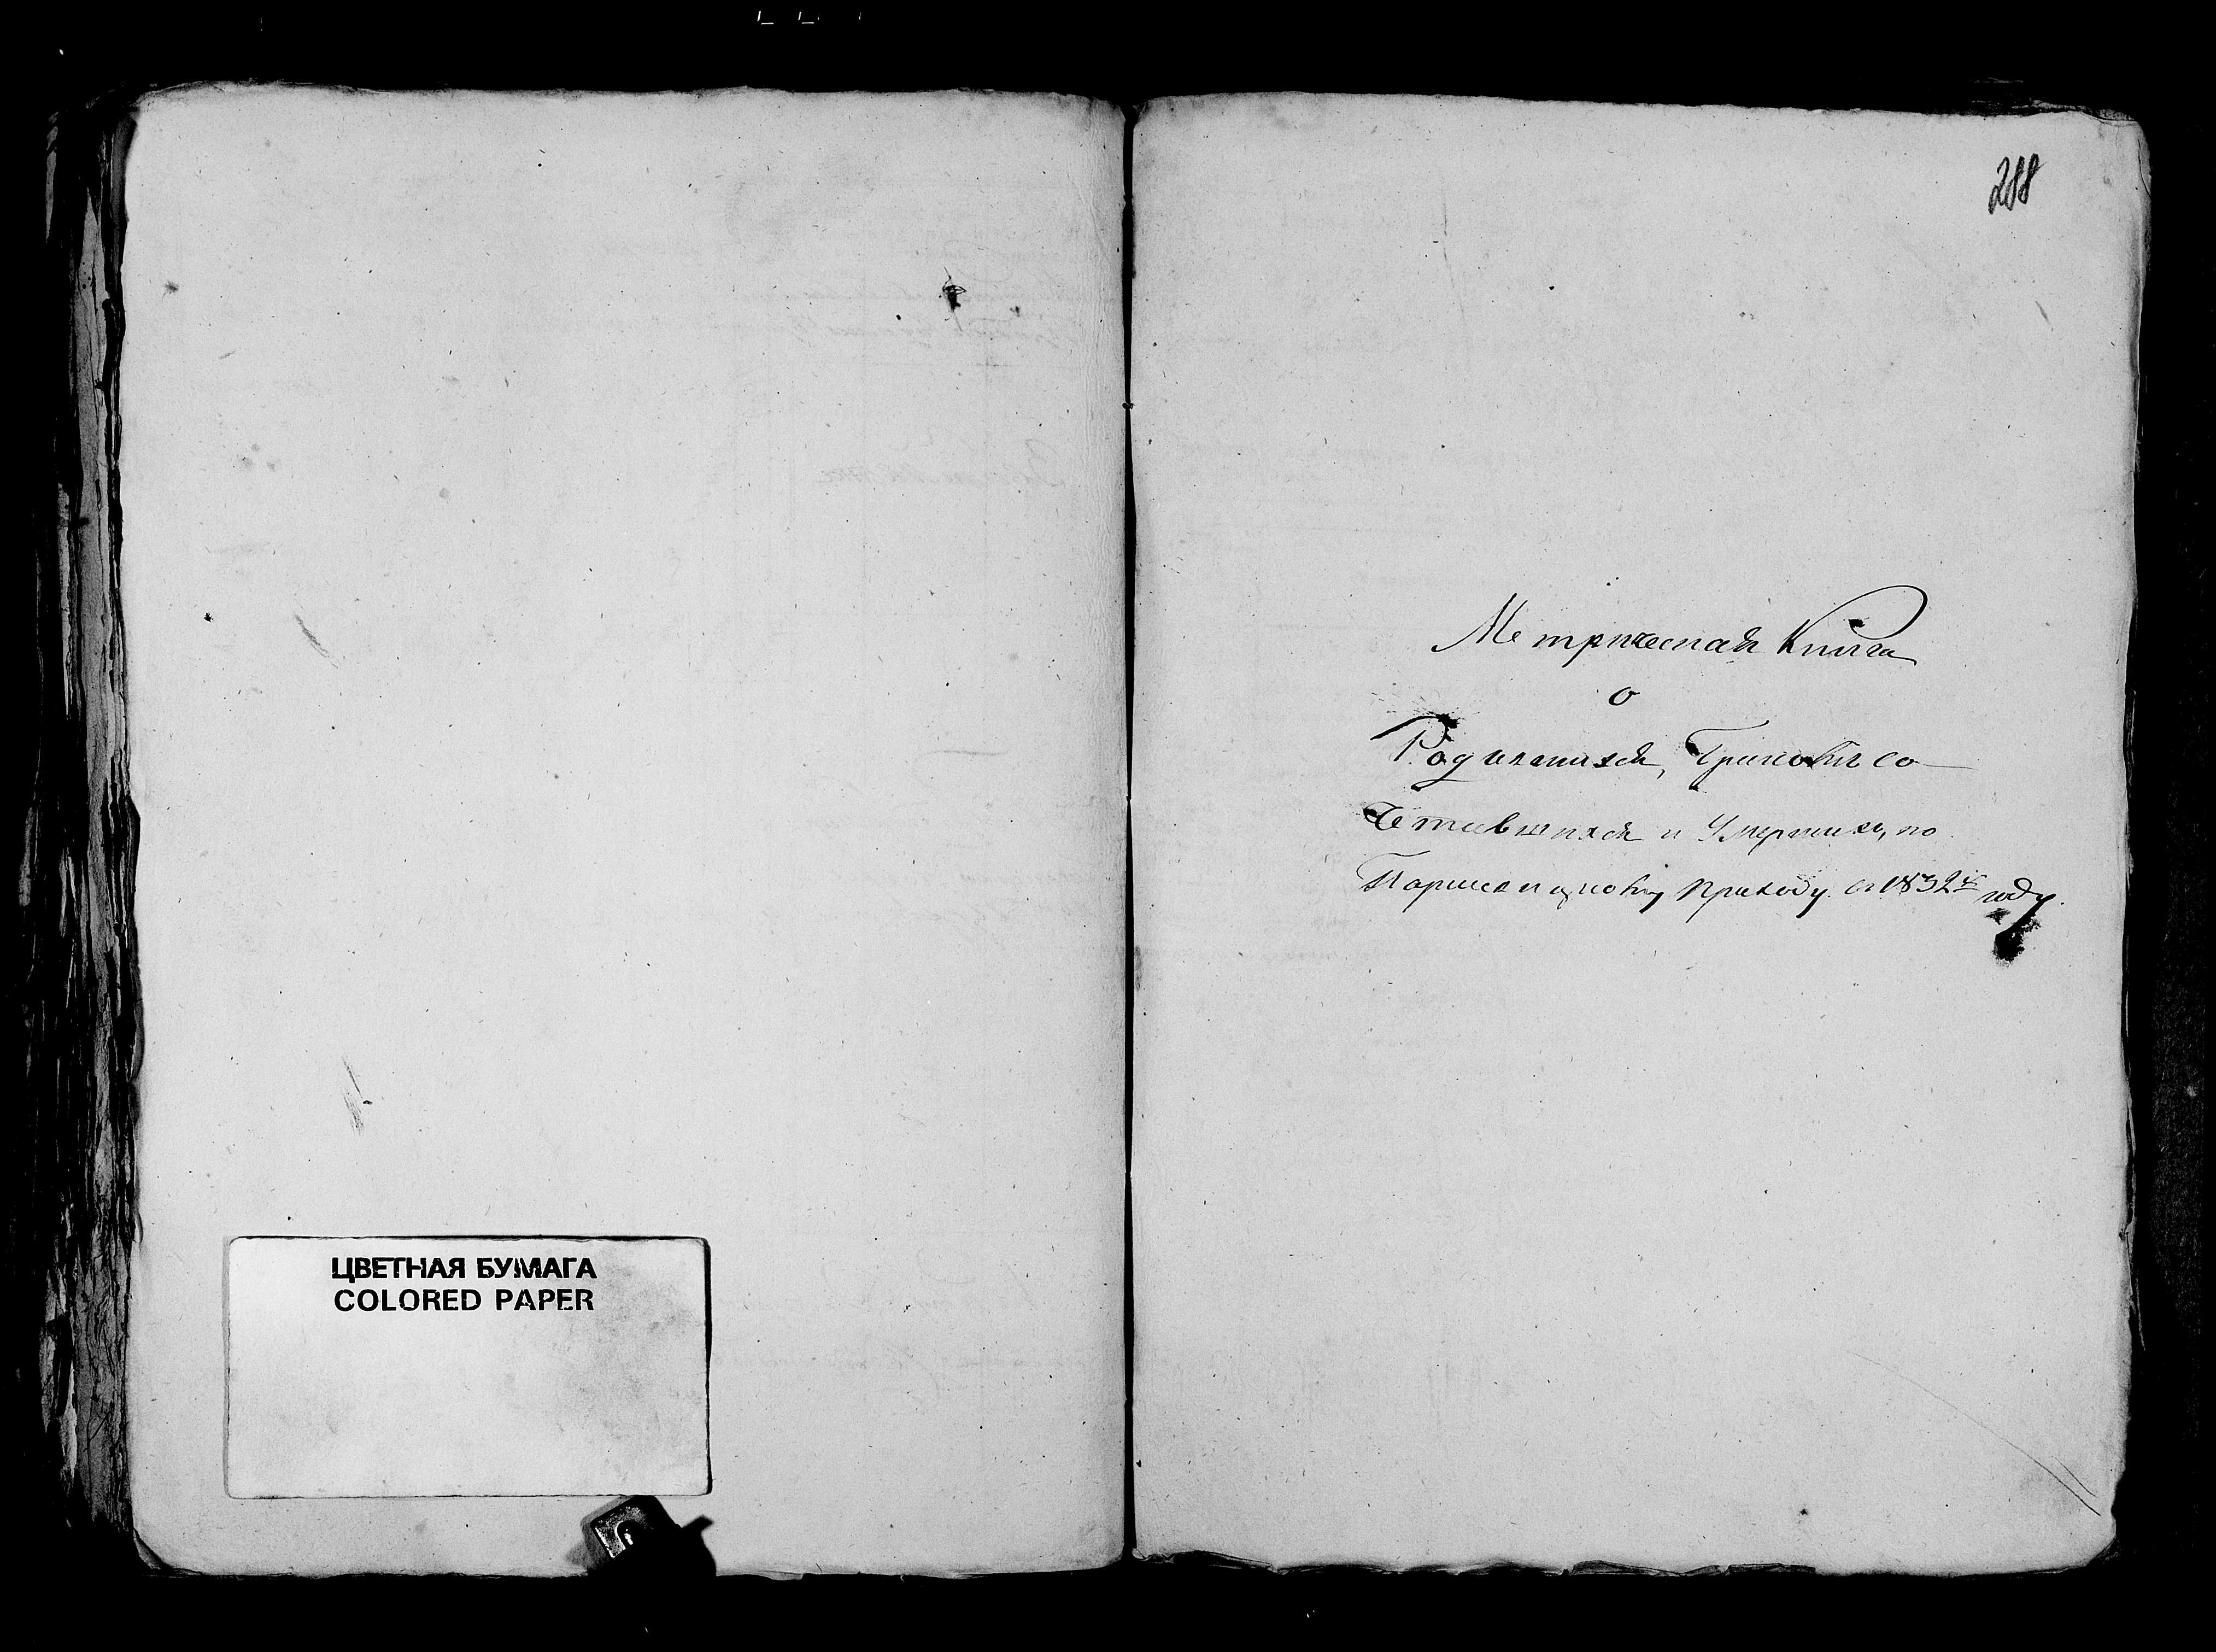 ЦВЕТНАЯ БУМАГА
COLORED PAPER
288
Метрическая Книга
о
Родившихся, Браковъ со
четавшихся и Умершихъ, по
приходу. въ 1832 году.